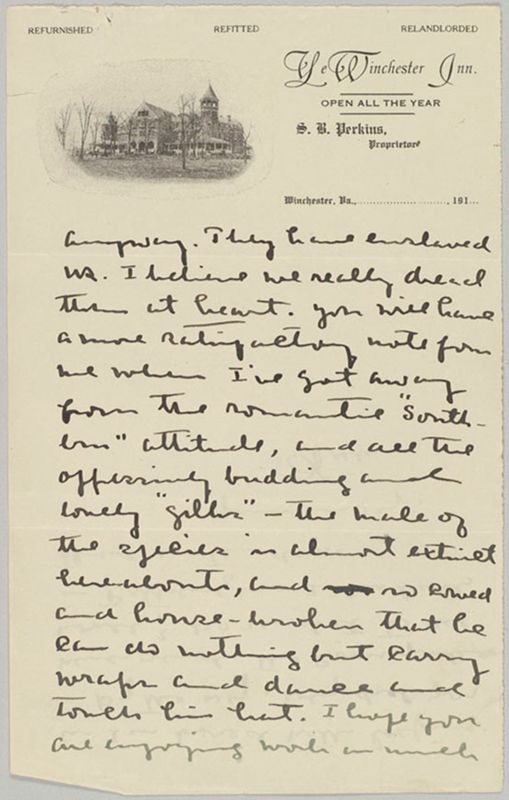 REFURNISHED REFITTED RELANDLORDED
Ye Winchester Inn.
OPEN ALL THE YEAR
S. B. Perkins,
Proprietor
Winchester, Va., 191
anyway. They have enslaved
us. I believe we really dread
them at heart. You will have
a more satisfactory note from
me when I've got away
from the romantic "South-
ern" attitude, and all the
offensively budding and
lonely "gillies" – the male of
the species is almost extinct
hereabouts, and so cowed
and house-broken that he
can do nothing but carry
wraps and dance and
touch his hat. I hope you
are enjoying work as much